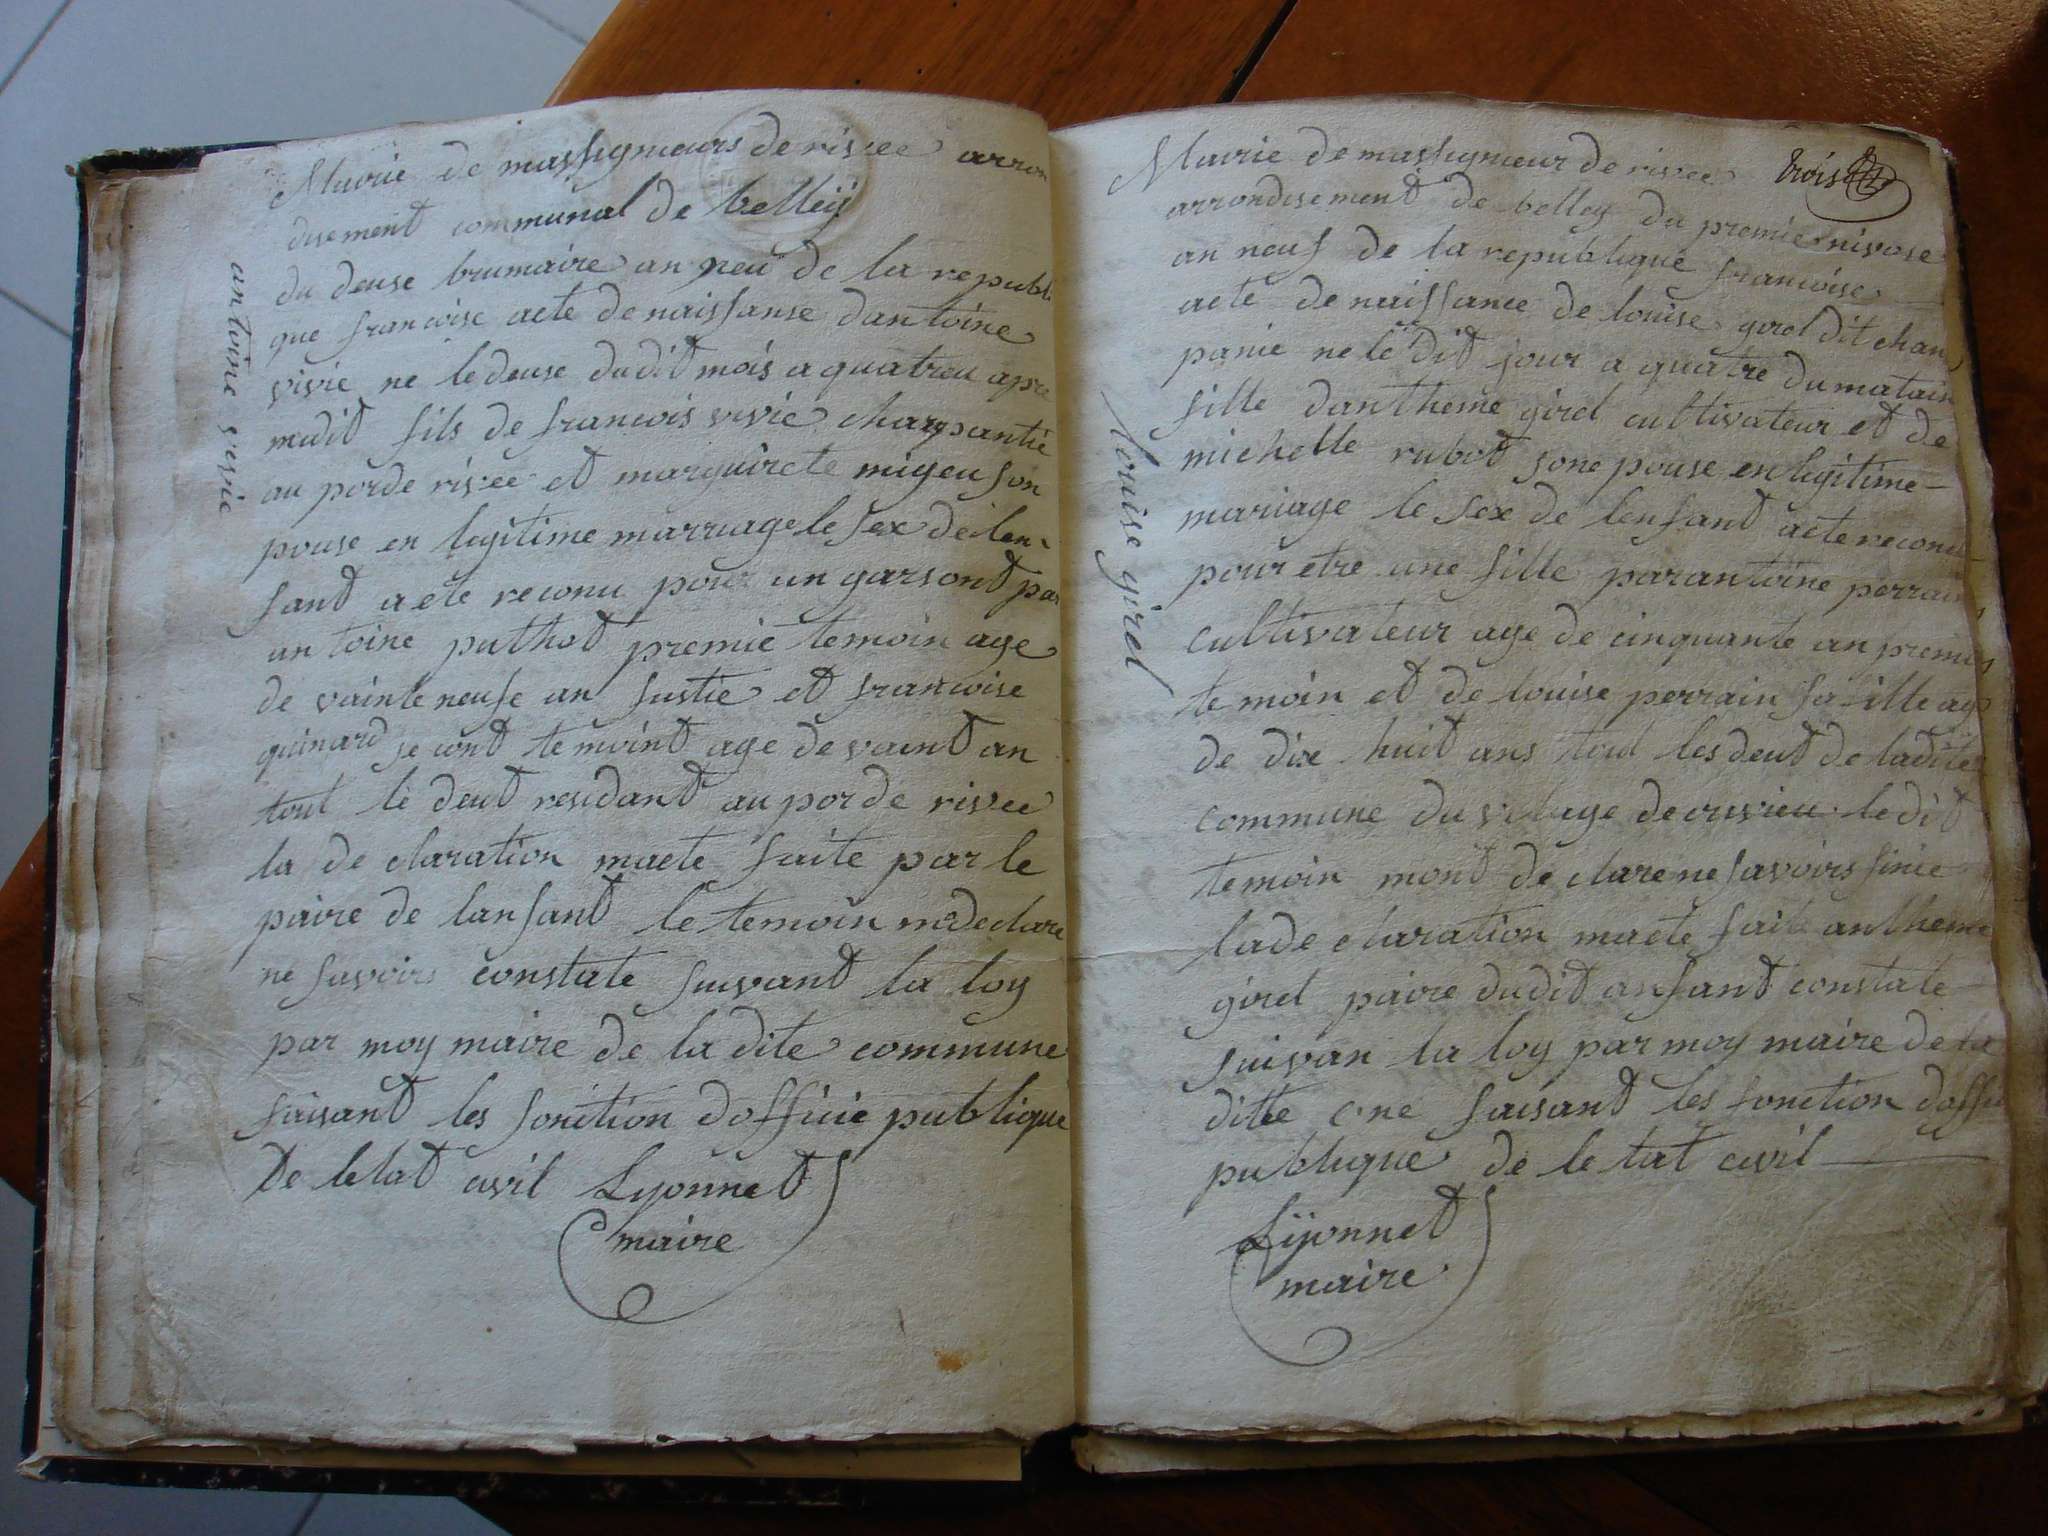 Mairie de massigneurs de rivee arron
disement communal de belleÿ
du deuse brumaire an neu de la republi
que francoise acte de naissanse dantoine
vivie ne le deuse dudit mois a quatreu apre
midit fils de francois vivie charpantie
au porde rivee et marguirete migeu son
pouse en legitime marriage le sex de len
fant a ete reconu pour un garsont par
antoine puthod premie temoin age
de vainteneufe an justie et francoise
guinard se cont temoint age de vaint an
tout le deut residant au porde rivee
la de claration maete faite par le
paire de lanfant le temoin mo declare
ne savoirs constate suivant la loy
par moy maire de la dite commune
faisant les fonction dofficie publique
De letat civil Lyonnet
maire
antoine vivie
trois
Mairie de massigneur de rivee
arrondisement de belley du premie nivose
an neuf de la republique francoise
acte de naissance de louise girel dit chan
panie ne le dit jour a quatre du matain
fille dantheme girel cultivateur et de
michelle rubod sone pouse en legitime
mariage le sex de lenfant aete reconu
pour etre une fille par antoine perrain
cultivateur age de cinquante an premie
temoin et de louise perrain sa fille age
de dix huit ans tout les deut de ladite
commune du vilage de cuvieu ledit
temoin mont de clare ne savoirs sinie
lade claration maete faite antheme
girel paire dudit anfant constate
suivan la loy par moy maire de la
ditte cne faisant les fonction doffi
publique de letat civil
Lÿonnet
maire
louise girel